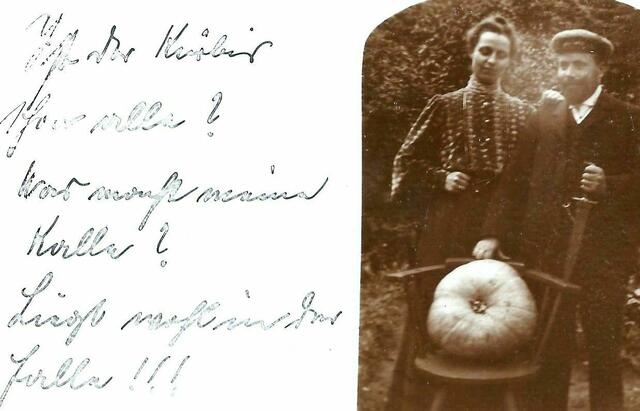 Ist der Kürbis
schon alle?
Was macht meine
Kalle?
Liegt wohl in der
Falle!!!